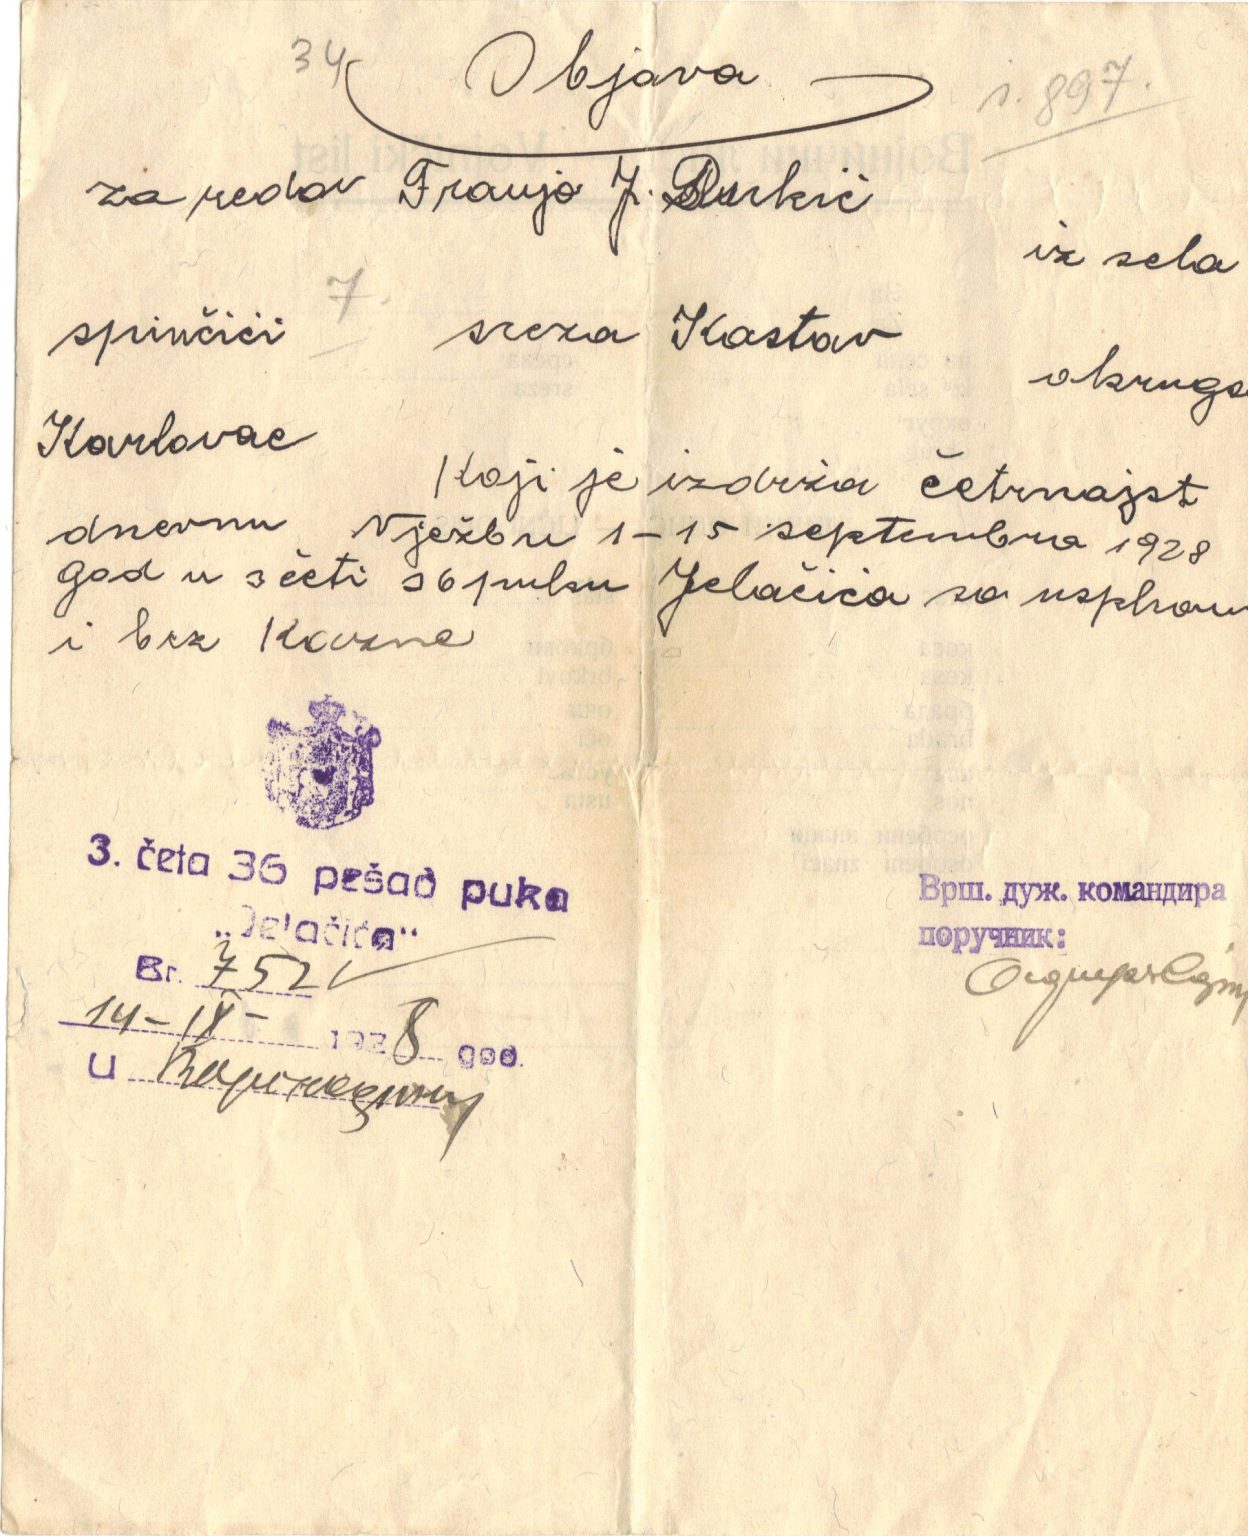 34 Objava
i. 897.
za redov Franjo J. Durkić
iz sela
spinčići 7. sreza Kastav
okruga
Karlovac
Koji je izdrža četrnajst
dnevnu vježbu 1-15 septembra 1928
god u 3 četi 36 puku Jelačića sa
i bez Kazne
3. četa 36 pešad puka
„Jelačića“
Br. 752
14-IX- 1928 god.
U
Врш. дуж. командира
поручник: